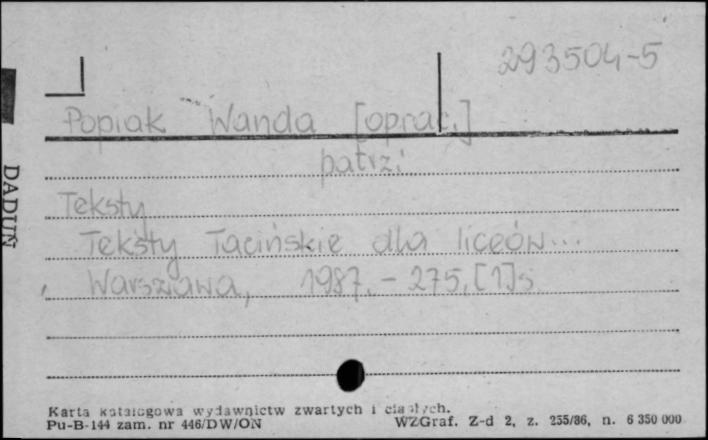 293504-5
Popiak Wanda [oprac.]
patrz:
Teksty
Teksty łacińskie dla liceów...
Warszawa, 1987. - 275, [1] s.
DADUŃ
Karta katalogowa wydawnictw zwartych i ciągłych.
Pu-B-144 zam. nr 446/DW/ON WZGraf. Z-d 2, z. 255/86, n. 6 350 000